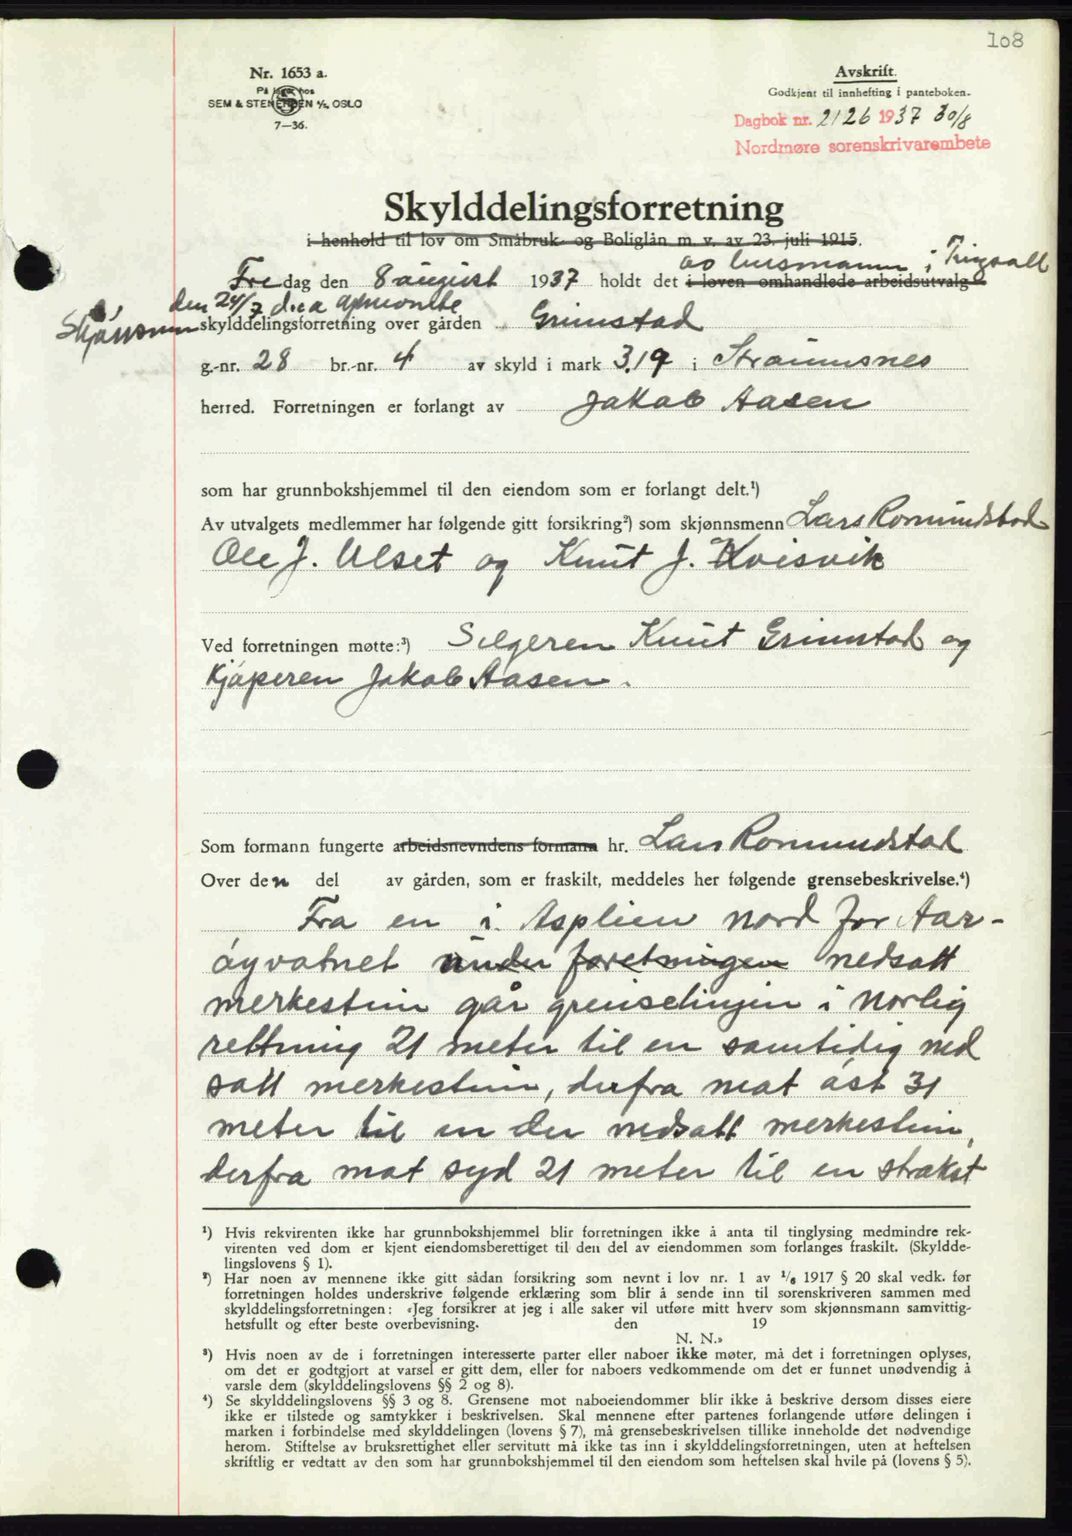 108
Nr. 1653 a.
På lager hos
SEM & STENERSEN A/S, OSLO
7—36.
Avskrift.
Godkjent til innhefting i panteboken.
Dagbok nr. 2126 1937 30/8
Nordmøre sorenskrivarembete
Skylddelingsforretning
i henhold til lov om Småbruk- og Boliglån m. v. av 23. juli 1915.
av lensmann i Tingvoll
Fredag den 8 august 1937 holdt det i loven omhandlede arbeidsutvalg
den 24/7 d.å. opnevnte
skjønnsmenn skylddelingsforretning over gården Grimstad
g.-nr. 28 br.-nr. 4 av skyld i mark 3.19 i Straumsnes
herred. Forretningen er forlangt av Jakob Aasen
som har grunnbokshjemmel til den eiendom som er forlangt delt.¹)
Av utvalgets medlemmer har følgende gitt forsikring²) som skjønnsmenn Lars Romundstad
Ole J. Ulset og Knut J. Kvisvik
Ved forretningen møtte:³) Selgeren Knut Grimstad og
Kjøperen Jakob Aasen.
Som formann fungerte arbeidsnevndens formann hr. Lars Romundstad
Over den del av gården, som er fraskilt, meddeles her følgende grensebeskrivelse.⁴)
Fra en i Asplien nord for Aar-
øyvatnet under foretningen nedsatt
merkestein går grenselinjen i norlig
rettning 21 meter til en samtidig ned
satt merkestein, derfra mot øst 31
meter til en der nedsatt merkestein,
derfra mot syd 21 meter til en strakst
¹) Hvis rekvirenten ikke har grunnbokshjemmel blir forretningen ikke å anta til tinglysing medmindre rek-
virenten ved dom er kjent eiendomsberettiget til den del av eiendommen som forlanges fraskilt. (Skyldde-
lingslovens § 1).
²) Har noen av mennene ikke gitt sådan forsikring som nevnt i lov nr. 1 av 1/6 1917 § 20 skal vedk. før
forretningen holdes underskrive følgende erklæring som blir å sende inn til sorenskriveren sammen med
skylddelingsforretningen: «Jeg forsikrer at jeg i alle saker vil utføre mitt hverv som skjønnsmann samvittig-
hetsfullt og efter beste overbevisning. den 19
N. N.»
³) Hvis noen av de i forretningen interesserte parter eller naboer ikke møter, må det i forretningen oplyses,
om det er godtgjort at varsel er gitt dem, eller for naboers vedkommende om det er funnet unødvendig å
varsle dem (skylddelingslovens §§ 2 og 8).
⁴) Se skylddelingslovens §§ 3 og 8. Grensene mot naboeiendommer blir ikke å beskrive dersom disses eiere
ikke er tilstede og samtykker i beskrivelsen. Skal mennene efter partenes forlangende utføre delingen i
marken i forbindelse med skylddelingen (lovens § 7), må grensebeskrivelsen tillike inneholde det nødvendige
herom. Stiftelse av bruksrettighet eller servitutt må ikke tas inn i skylddelingsforretningen, uten at heftelsen
skriftlig er vedtatt av den som har grunnbokshjemmel til den eiendom som heftelsen skal hvile på (lovens § 5).